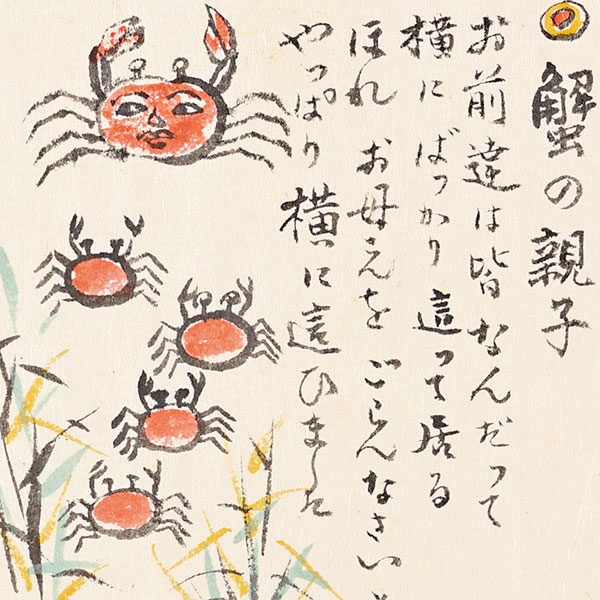 蟹の親子
お前達は皆なんだって
横にばっかり這って居る
ほれ お母さんをごらんなさい
やっぱり横に這ひました